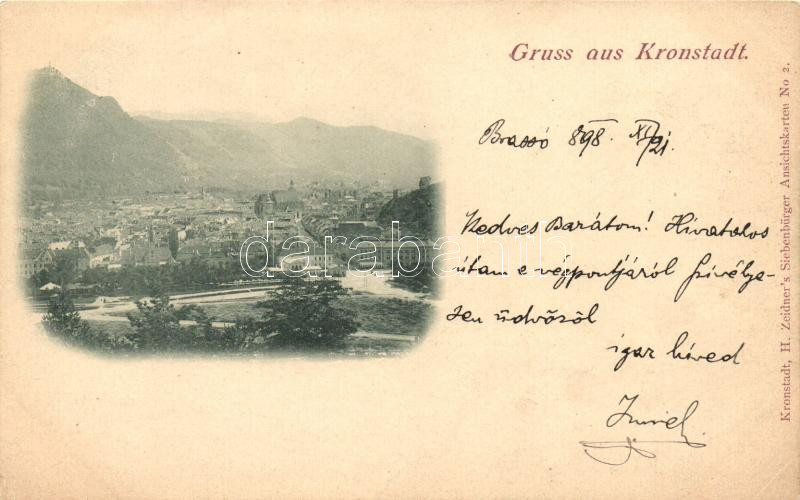 Gruss aus Kronstadt.
Brassó 898. XI/21.
Kedves Barátom! Hivatalos
útam e végpontjáról szivélye-
sen üdvözöl
igaz híved
Kronstadt, H. Zeidner's Siebenbürger Ansichtskarten No 2.
darabanth